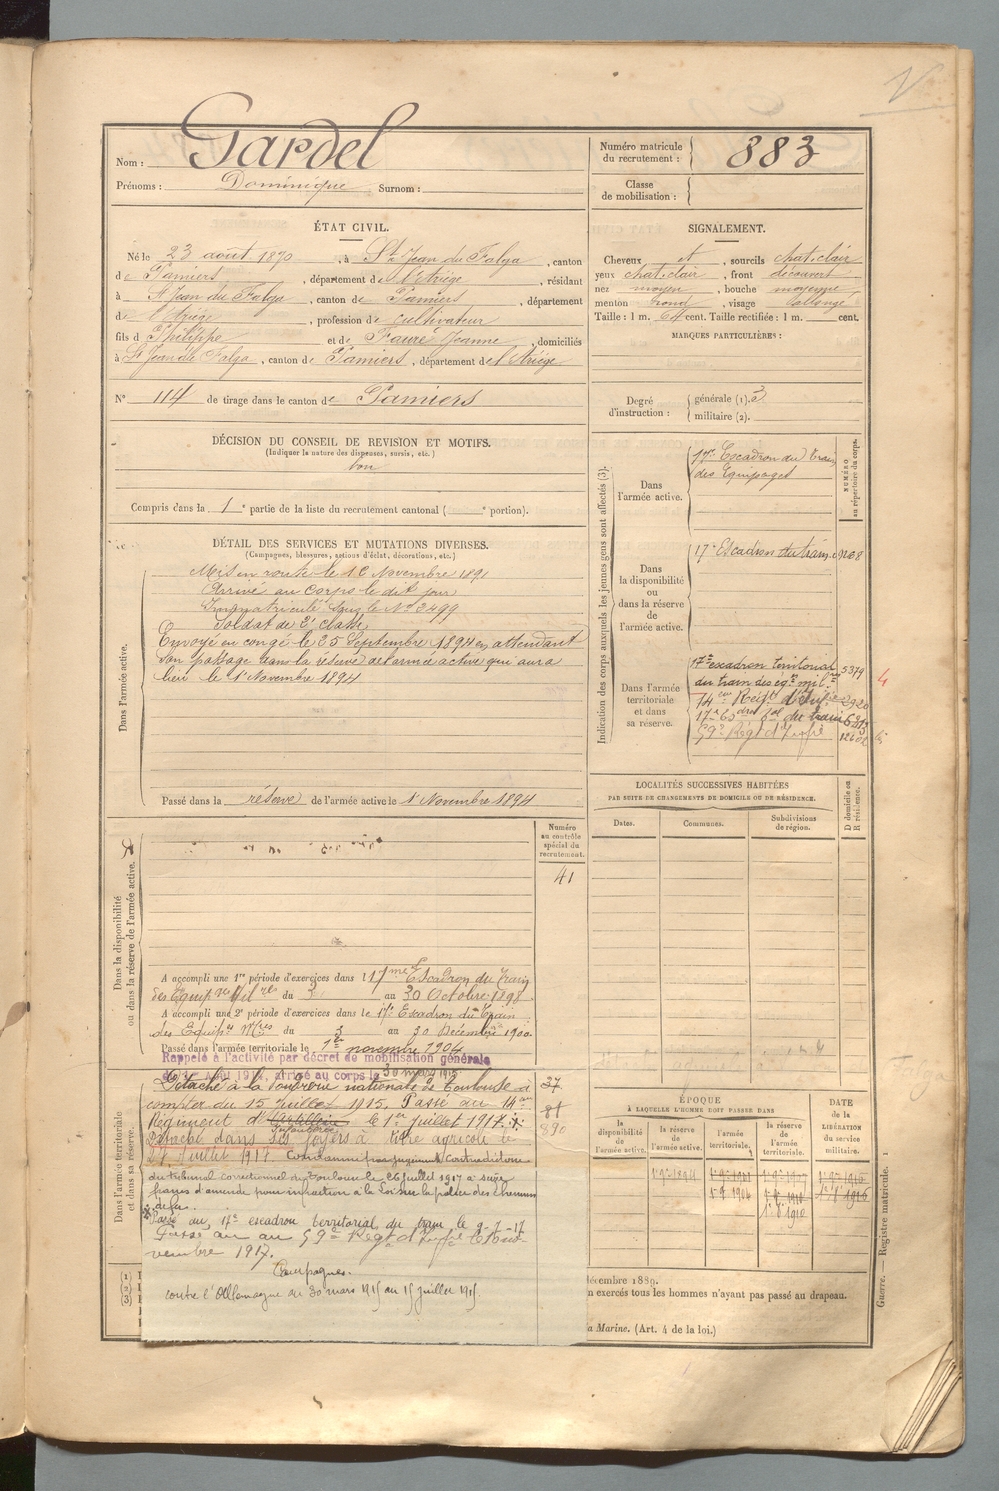 Nom : Gardel
Prénoms : Dominique Surnom :
Numéro matricule du recrutement : 883
Classe de mobilisation :
ÉTAT CIVIL.
Né le 23 août 1870, à St Jean du Falga, canton
de Pamiers, département de l'Ariège, résidant
à St Jean du Falga, canton de Pamiers, département
de l'Ariège, profession de cultivateur
fils d Philippe et de Fauré Jeanne, domiciliés
à St Jean du Falga, canton de Pamiers, département de l'Ariège
N° 114 de tirage dans le canton de Pamiers
SIGNALEMENT.
Cheveux et, sourcils chat. clair
yeux chat. clair, front découvert
nez moyen, bouche moyenne
menton rond, visage allongé
Taille : 1 m. 64 cent. Taille rectifiée : 1 m. cent.
MARQUES PARTICULIÈRES :
Degré d'instruction : générale (1). 3
militaire (2).
DÉCISION DU CONSEIL DE REVISION ET MOTIFS.
(Indiquer la nature des dispenses, sursis, etc.)
bon
Compris dans la 1e partie de la liste du recrutement cantonal ( e portion).
DÉTAIL DES SERVICES ET MUTATIONS DIVERSES.
(Campagnes, blessures, actions d'éclat, décorations, etc.)
Dans l'armée active.
Mis en route le 10 Novembre 1891
Arrivé au corps le dit jour
Immatriculé sous le N° 2499
Soldat de 2e classe
Envoyé en congé le 25 Septembre 1894 en attendant
son passage dans la réserve de l'armée active qui aura
lieu le 1er Novembre 1894
Passé dans la réserve de l'armée active le 1er Novembre 1894
Indication des corps auxquels les jeunes gens sont affectés (3).
NUMÉRO au répertoire du corps.
Dans l'armée active.
17me Escadron du Train
des Equipages
Dans la disponibilité ou dans la réserve de l'armée active.
17e Escadron du train 9268
Dans l'armée territoriale et dans sa réserve.
17e escadron territorial
du train des éq. mil. 5379
14me Regt d'Inf 2920
17e Eson tal du train
59e Régt d'Infie
4
LOCALITÉS SUCCESSIVES HABITÉES
PAR SUITE DE CHANGEMENTS DE DOMICILE OU DE RÉSIDENCE.
D domicile ou R résidence.
Dates. Communes. Subdivisions de région.
Dans la disponibilité ou dans la réserve de l'armée active.
Numéro au contrôle spécial du recrutement.
41
A accompli une 1re période d'exercices dans l 17me Escadron du Train
des Equipages Milres du 3 au 30 Octobre 1898
A accompli une 2e période d'exercices dans le 17e Escadron du Train
des Equipes Mres du 3 au 30 Décembre 1900
Passé dans l'armée territoriale le 1er novembre 1904
Dans l'armée territoriale et dans sa réserve.
Rappelé à l'activité par décret de mobilisation générale
arrivé au corps le 30 mars 1915
Détaché à la Poudrerie nationale de Toulouse à
compter du 15 Juillet 1915. Passé au 14me
Régiment d'Artillerie le 1er Juillet 1917.
Infanterie
Détaché dans ses foyers à titre agricole le
27 Juillet 1917. Condamné par jugement contradictoire
du tribunal correctionnel de Toulouse le 26 juillet 1917 à seize
francs d'amende pour infraction à la Loi sur la police des chemins
de fer.
Passé au 17e escadron territorial du train le 9-7-17
Passé au 59e Régt d'Infie le 1er Novembre
1917.
Campagnes.
contre l'Allemagne du 30 mars 1915 au 15 juillet 1915
37
81
890
ÉPOQUE
À LAQUELLE L'HOMME DOIT PASSER DANS
la disponibilité de l'armée active. la réserve de l'armée active. l'armée territoriale. la réserve de l'armée territoriale.
DATE de la LIBÉRATION du service militaire.
décembre 1889.
n exercés tous les hommes n'ayant pas passé au drapeau.
a Marine. (Art. 4 de la loi.)
Guerre. — Registre matricule. 1